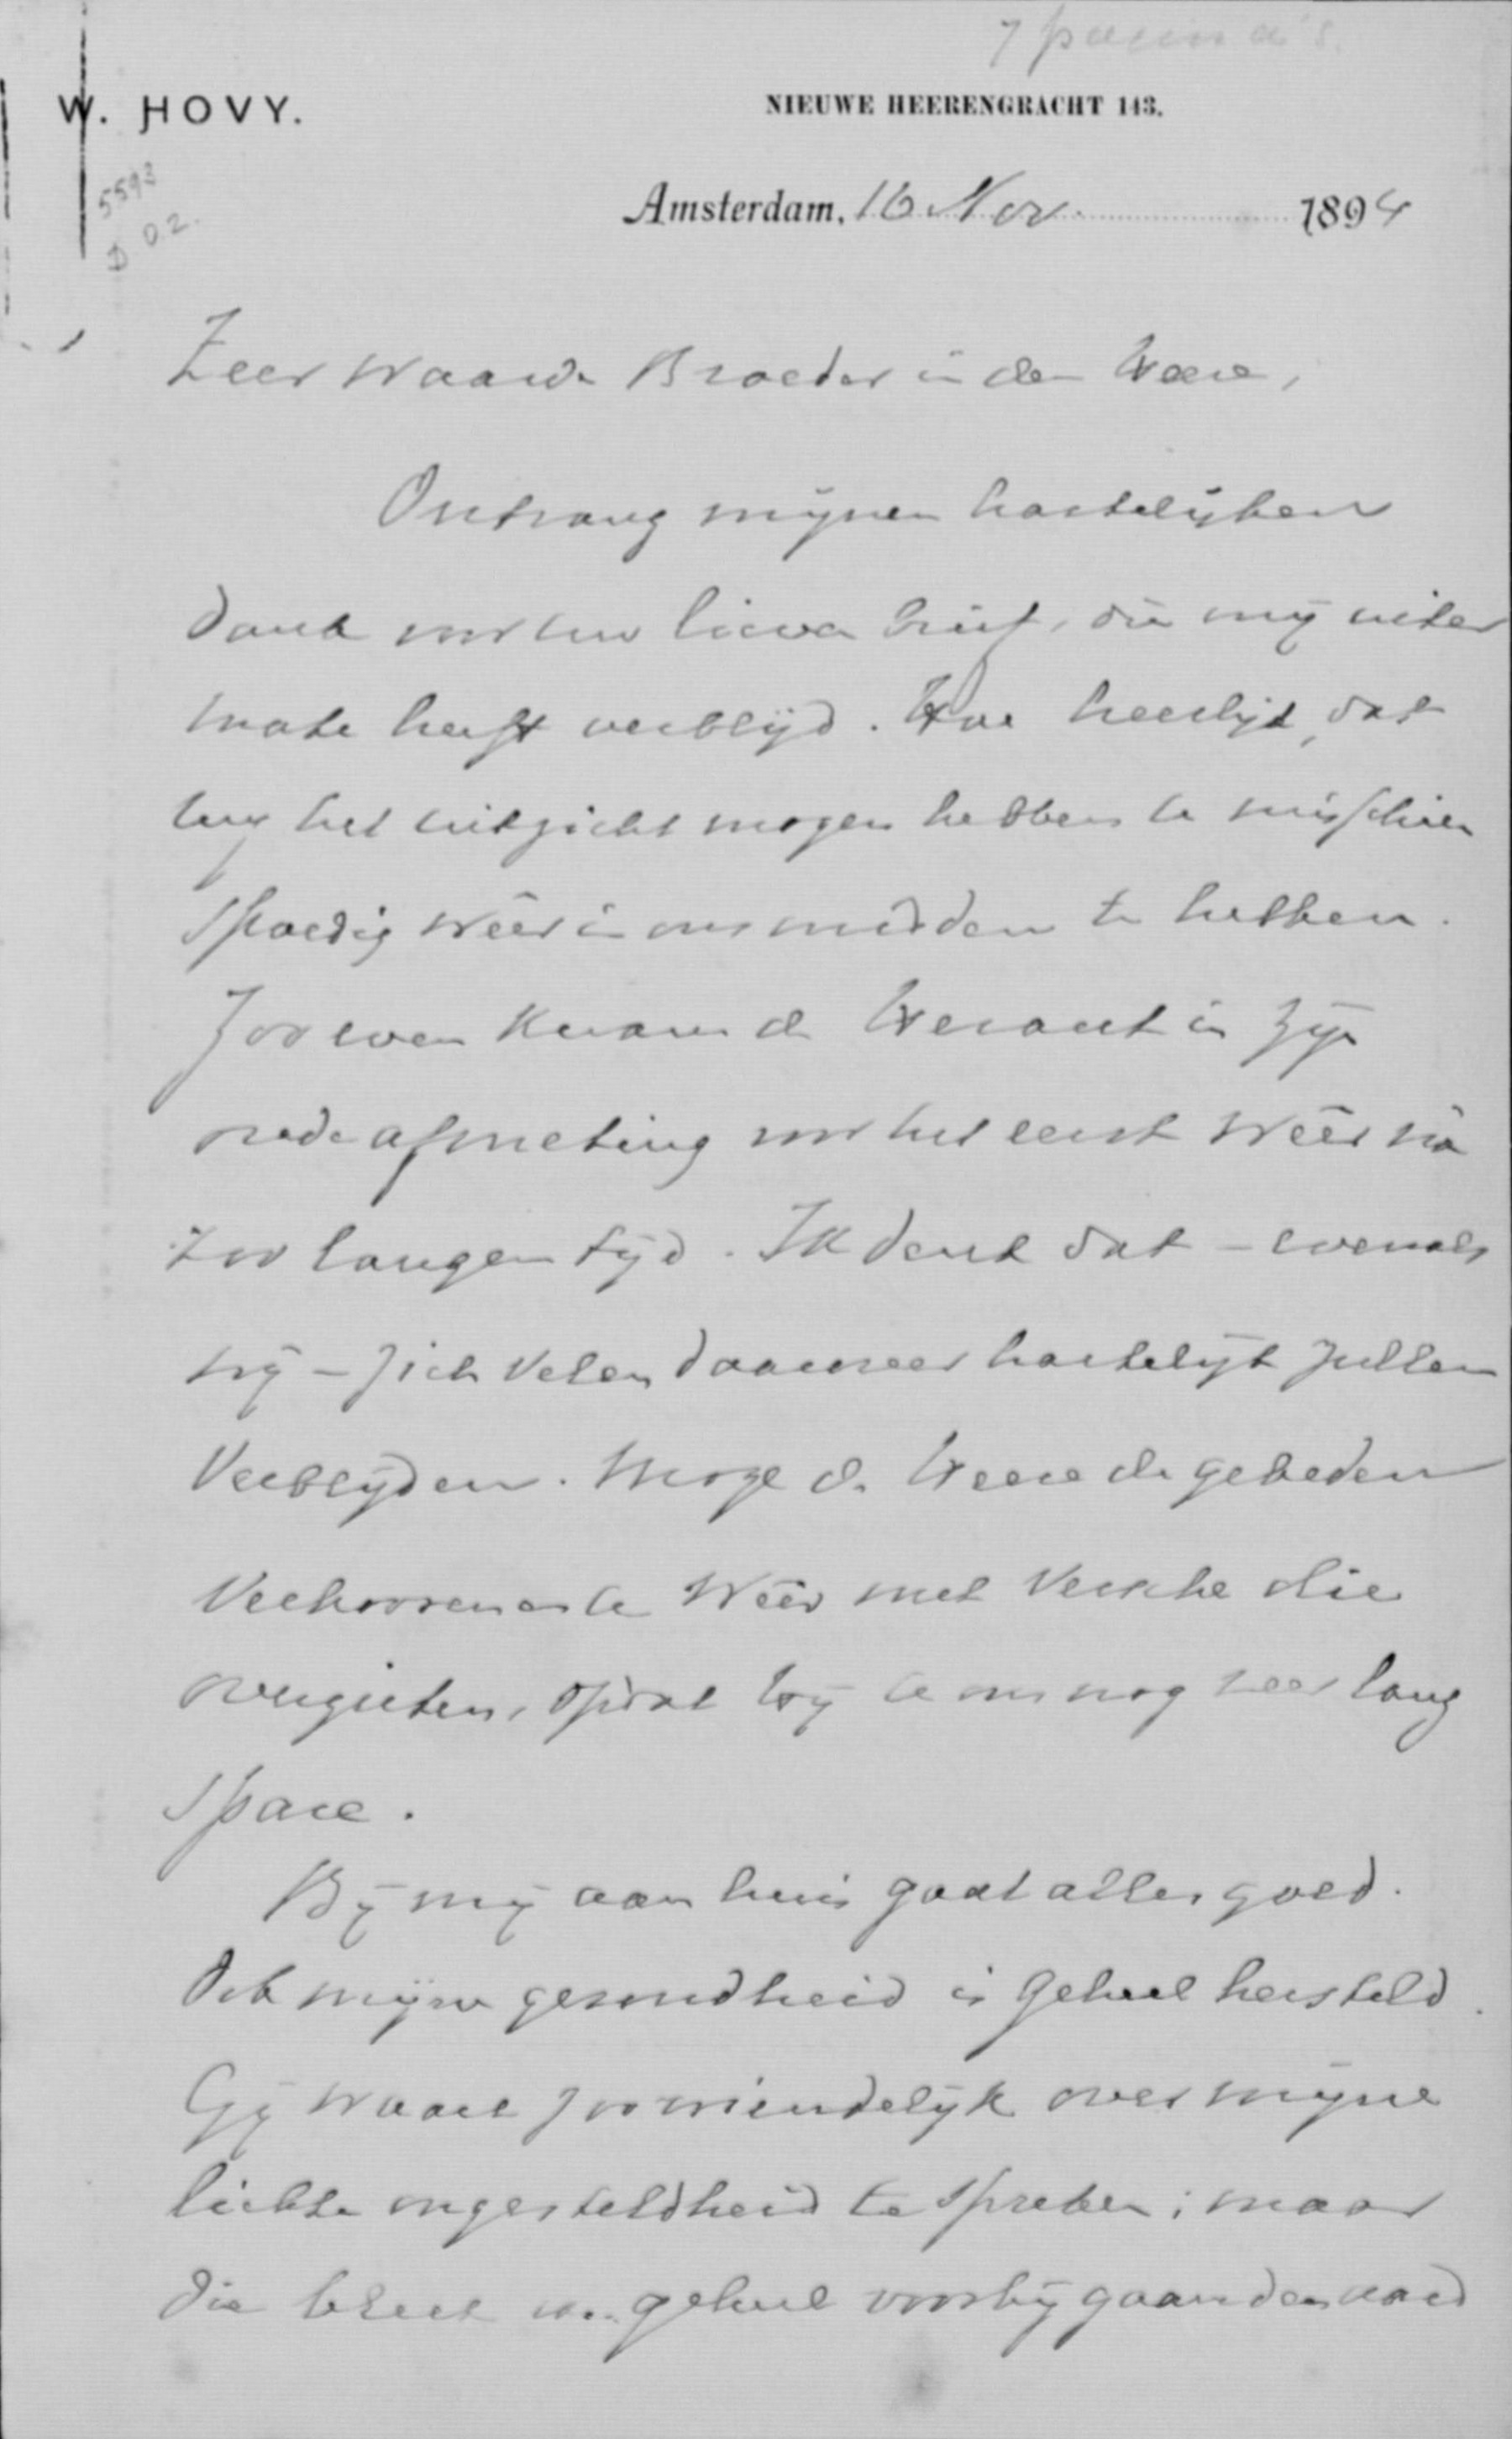 7 pagina's.
W. HOVY.
NIEUWE HEERENGRACHT 143.
5593
D 02.
Amsterdam, 16 Nov. 1894
Zeer Waarde Broeder in den Heere,
Ontvang mijnen hartelijken
dank voor uw lieven brief, die mij uiter
mate heeft verblijd. Hoe heerlijk, dat
wij het uitzicht mogen hebben U misschien
spoedig wêer in ons midden te hebben.
Zoo even kwam de Heraut in zijn
oude afmeting voor het eerst wêer na
zoo langen tijd. Ik denk dat – evenals
wij – zich velen daarmee hartelijk zullen
verblijden. Moge de Heere de gebeden
verhooren en U wêer met versche olie
overgieten, opdat Hij U ons nog zeer lang
spare.
Bij mij aan huis gaat alles goed.
Ook mijne gezondheid is geheel hersteld.
Gij waart zoo vriendelijk over mijne
lichte ongesteldheid te spreken; maar
die bleek van geheel voorbijgaanden aard